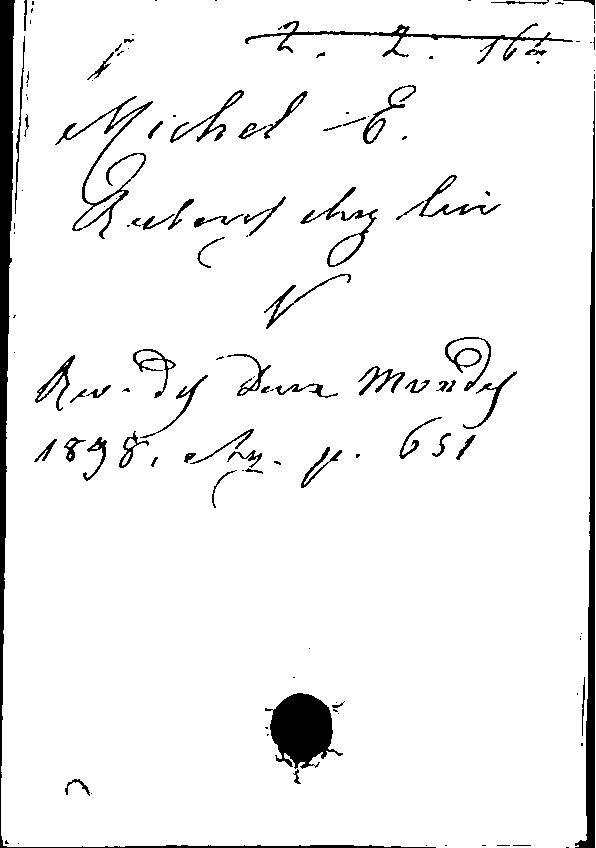 2. 2. 16
Michel E.
Rubens chez lui
V
Rev. des Deux Mondes
1898, p. 651